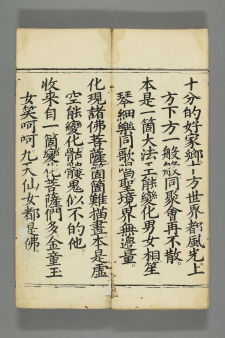 十分的好家鄉十方世界都風光上
方下方一般般同聚會再不散
本是一箇大法王能變化男女相笙
琴細樂同歌唱聖境界無邊量
化現諸佛菩薩箇箇難描畫本是虛
空能變化骷髏鬼似不的他
收來自一箇變化菩薩們多金童玉
女笑呵呵九天仙女都是佛